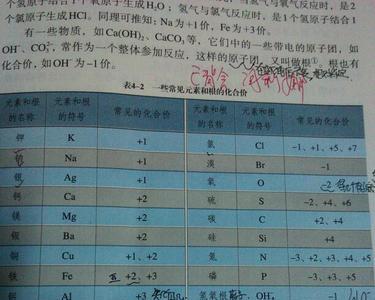 个氢原子结合1个氧原子生成H₂O；氢气与氯气反应时，是2
个氯原子生成HCl。同理可推知：Na为+1价，Fe为+3价。
有一些物质，如Ca(OH)₂、CaCO₃等，它们中的一些带电的原子团，如
OH⁻、CO₃²⁻，常作为一个整体参加反应，这样的原子团，又叫做根①。根也有
化合价，如OH⁻为-1价。
表4-2 一些常见元素和根的化合价
元素和根的名称 元素和根的符号 常见的化合价 元素和根的名称 元素和根的符号 常见的化合价
钾 K +1 氯 Cl -1、+1、+5、+7
钠 Na +1 溴 Br -1
银 Ag +1 氧 O -2
钙 Ca +2 硫 S -2、+4、+6
镁 Mg +2 碳 C +2、+4
钡 Ba +2 硅 Si +4
铜 Cu +1、+2 氮 N -3、+2、+3、+4、+5
铁 Fe +2、+3 磷 P -3、+3、+5
铝 Al +3 氢氧根 OH⁻ -1